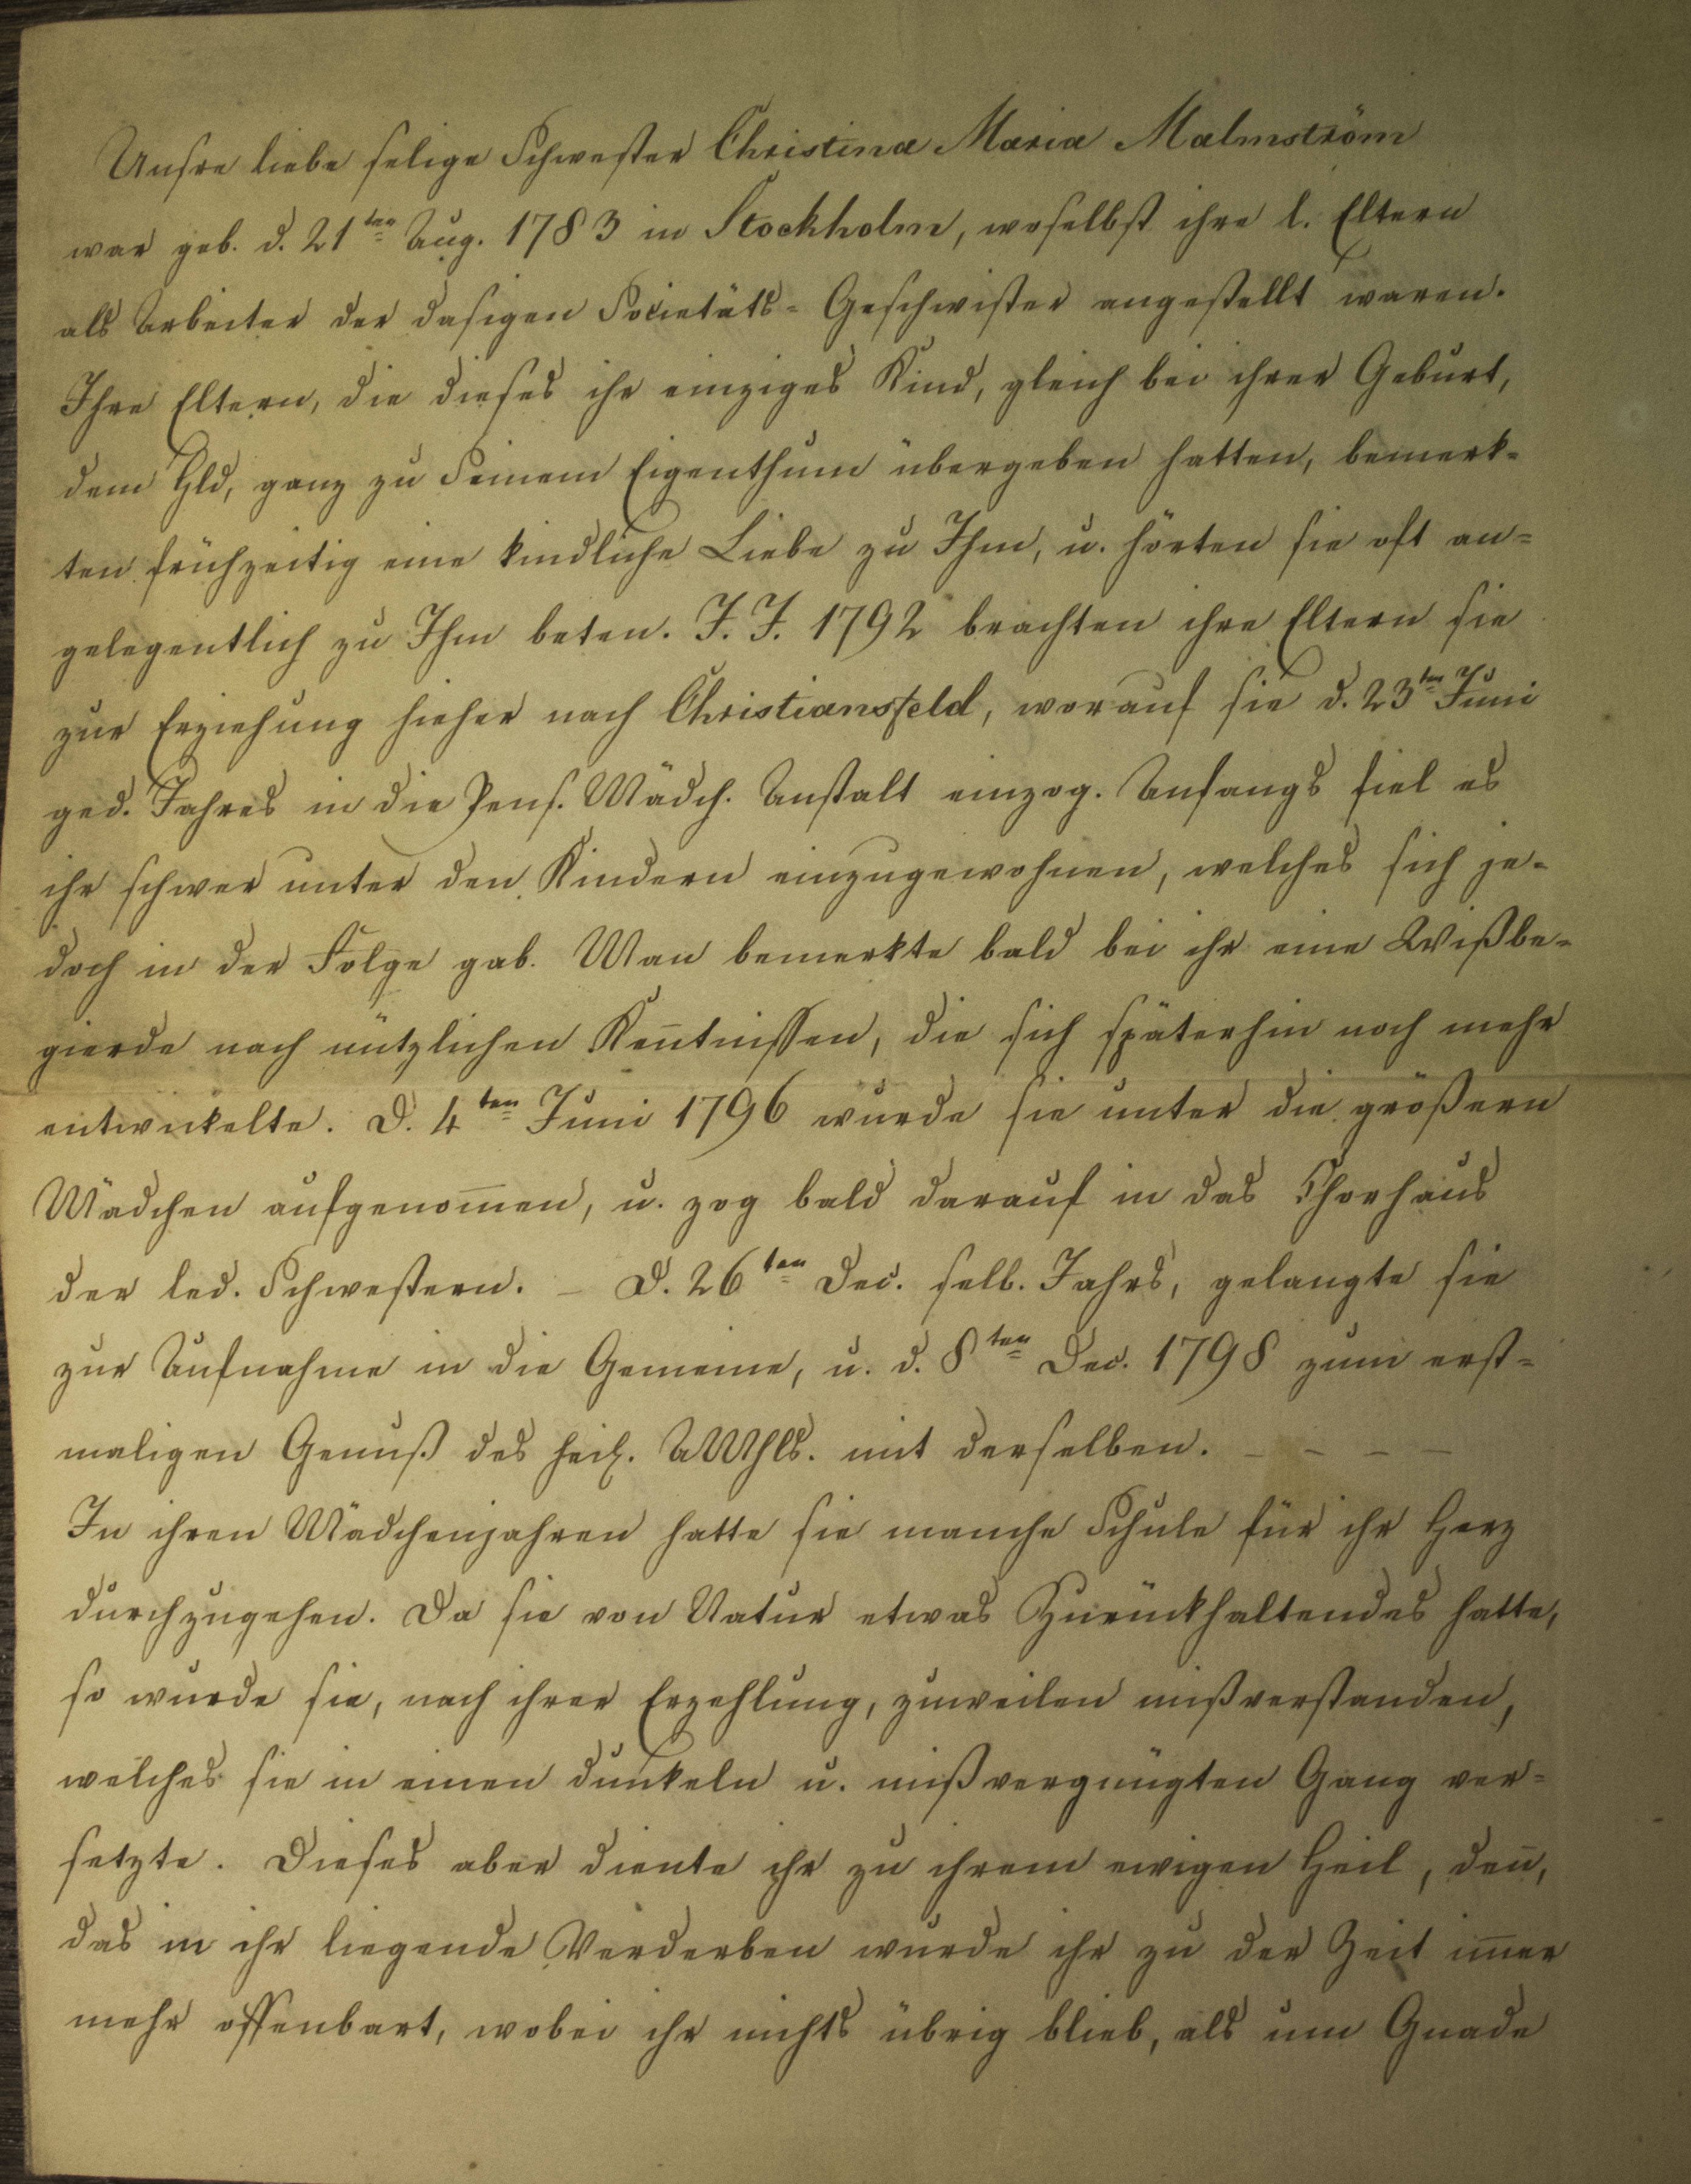 Unsre liebe selige Schwester Christina Maria Malmström
war geb. d. 21ten Aug. 1783 in Stockholm, woselbst ihre l. Eltern
als Arbeiter der dasigen Societäts- Geschwister angestellt waren.
Ihre Eltern, die dieses ihr einziges Kind, gleich bei ihrer Geburt,
dem Hld, ganz zu Seinem Eigenthum übergeben hatten, bemerk-
ten frühzeitig eine kindliche Liebe zu Ihm, u. hörten sie oft an-
gelegentlich zu Ihm beten. I. J. 1792 brachten ihre Eltern sie
zur Erziehung hieher nach Christiansfeld, worauf sie d. 23ten Juni
ged. Jahres in die Pens. Mädch. Anstalt einzog. Anfangs fiel es
ihr schwer unter den Kindern einzugewohnen, welches sich je-
doch in der Folge gab. Man bemerkte bald bei ihr eine Wißbe-
gierde nach nützlichen Keñtnissen, die sich späterhin noch mehr
entwickelte. D. 4ten Juni 1796 wurde sie unter die größern
Mädchen aufgenom̄en, u. zog bald darauf in das Chorhaus
der led. Schwestern. – D. 26ten Dec. selb. Jahrs, gelangte sie
zur Aufnahme in die Gemeine, u. d. 8ten Dec. 1798 zum erst-
maligen Genuß des heil. AMhls. mit derselben. – – – –
In ihren Mädchenjahren hatte sie manche Schule für ihr Herz
durchzugehen. Da sie von Natur etwas Zurückhaltendes hatte,
so wurde sie, nach ihrer Erzehlung, zuweilen mißverstanden,
welches sie in einen dunkeln u. mißvergnügten Gang ver-
setzte. Dieses aber diente ihr zu ihrem ewigen Heil, deñ,
das in ihr liegende Verderben wurde ihr zu der Zeit im̄er
mehr offenbart, wobei ihr nichts übrig blieb, als um Gnade